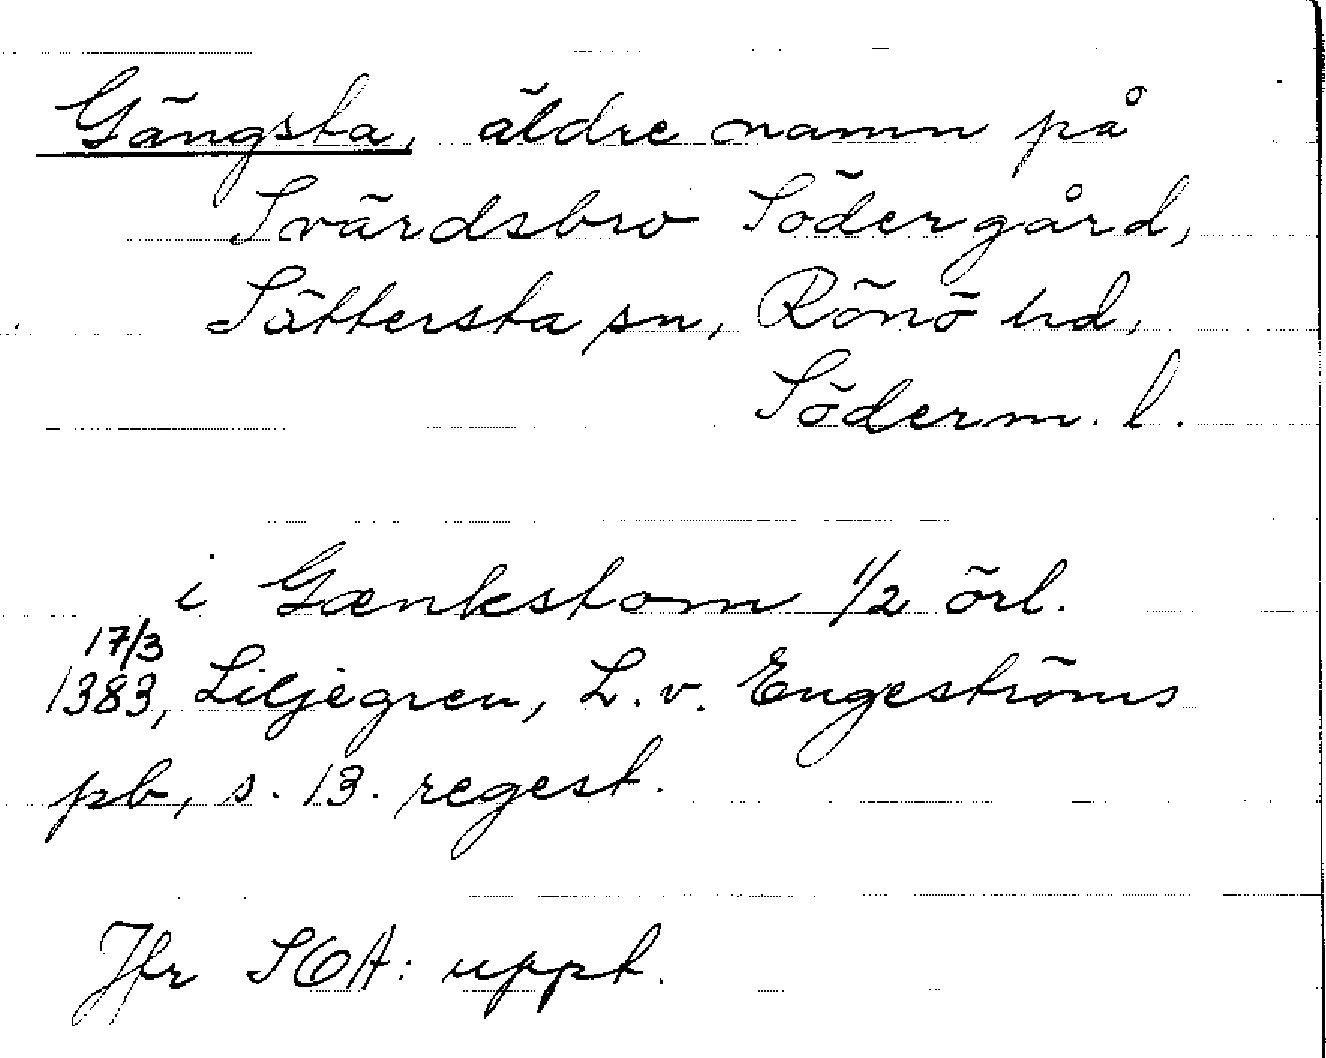 Gängsta, äldre namn på
Svärdsbro Södergård,
Sättersta sn, Rönö hd,
Söderm. l.
i Gænkstom 1/2 örl.
17/3
1383, Liljegren, L. v. Engeströms
pb, s. 13. regest.
Jfr SOA: uppt.